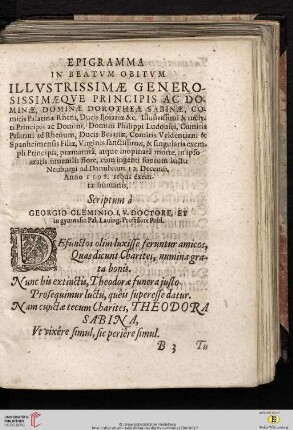 EPIGRAMMA
IN BEATVM OBITVM
ILLVSTRISSIMÆ GENERO-
SISSIMÆQVE PRINCIPIS AC DO-
MINÆ, DOMINÆ DOROTHEÆ SABINÆ, CO-
mitis Palatinæ Rheni, Ducis Boiariæ &c. Illustrissimi & inclyti
Principis ac Domini, Domini Philippi Ludovici, Comitis
Palatini ad Rhenum, Ducis Boiariæ, Comitis Veldentiani &
Sponheimensis Filiæ, Virginis sanctissimæ, & singularis exem-
pli Principis, præmatura, atque inopinata morte, in ipso
ætatis iuvenilis flore, cum ingenti suorum luctu
Neuburgi ad Danubeum 12. Decemb.
Anno 1598. rebus exem-
tæ humanis.
Scriptum à
GEORGIO CLEMINIO I. V. DOCTORE, ET
in gymnasio Pal. Lauing. Professore Publ.
DEfunctos olim luxisse feruntur amicos,
Quas dicunt Charites, numina gra-
ta bonis.
Nunc his extinctis, Theodoræ funera justo
Prosequimur luctu, quêis superesse datur.
Nam cunctæ tecum Charites, THEODORA
SABINA,
Vt vixêre simul, sic periêre simul.
B 3 Tu
UNIVERSITÄTS-
BIBLIOTHEK
HEIDELBERG